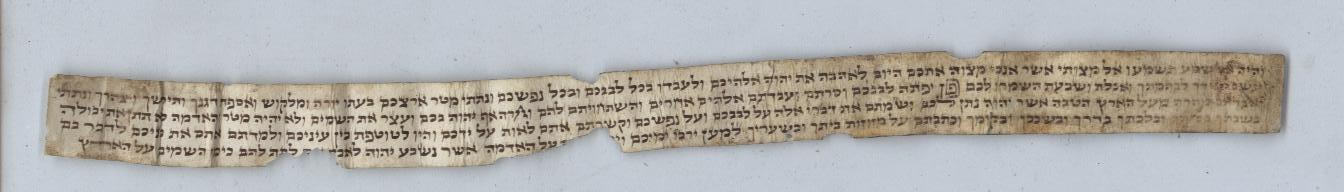 והיה שמע תשמעו אל מצותי אשר אנכי מצוה אתכם היום לאהבה את יהוה אלהיכם ולעבדו בכל לבבכם ובכל נפשכם ונתתי מטר ארצכם בעתו יורה ומלקוש ואספת דגנך ותירשך ויצהרך ונתתי
לבהמתך ואכלת ושבעת השמרו לכם פן יפתה לבבכם וסרתם ועבדתם אלהים אחרים והשתחויתם להם וחרה אף יהוה בכם ועצר את השמים ולא יהיה מטר והאדמה לא תתן את יבולה
מהרה מעל הארץ הטבה אשר יהוה נתן לכם ושמתם את דברי אלה על לבבכם ועל נפשכם וקשרתם אתם לאות על ידכם והיו לטוטפת בין עיניכם ולמדתם אתם את בניכם לדבר בם
בשבתך ובלכתך בדרך ובשכבך ובקומך וכתבתם על מזוזות ביתך ובשעריך למען ירבו ימיכם על האדמה אשר נשבע יהוה לתת להם כימי השמים על הארץ